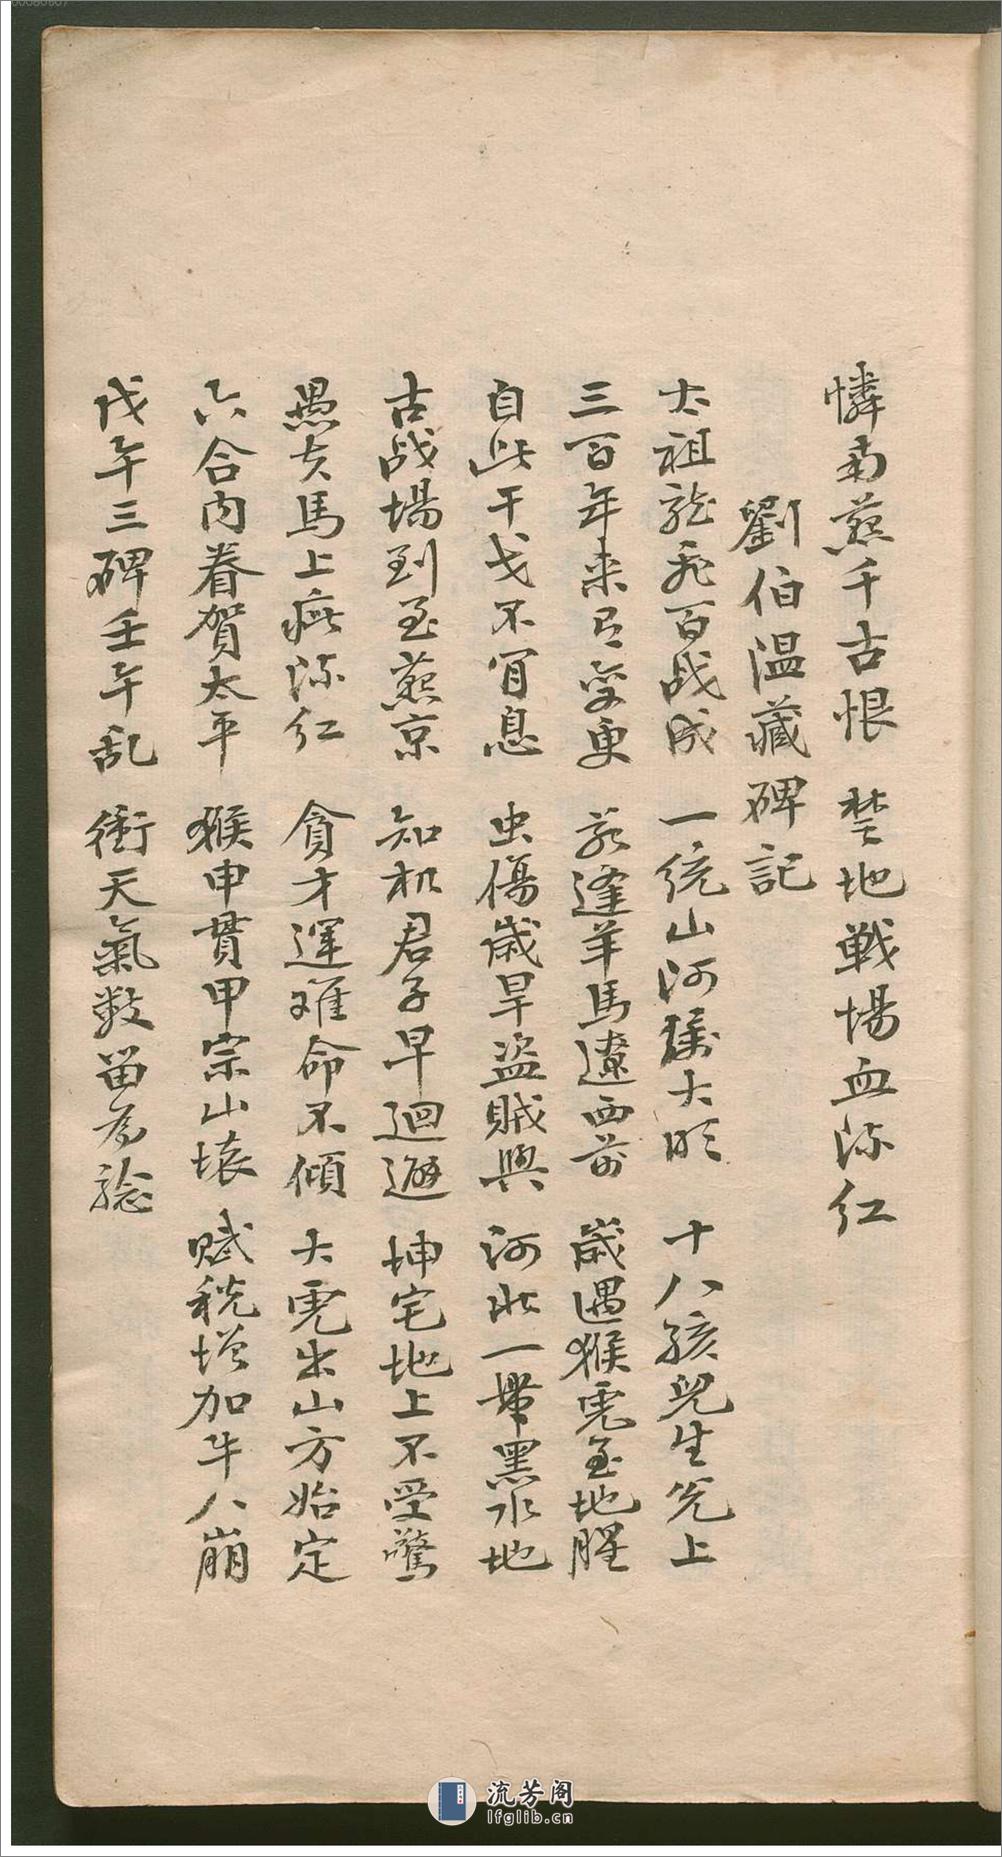 憐南燕千古恨 楚地戦場血流红
劉伯温藏碑記
太祖龍飛百战成 一统山河獲大明 十八孩兒生兑上
三百年来有变更 若逢羊馬遼西前 歲遇猴虎至地腥
自此干戈不肯息 虫傷歲旱盗賊興 河北一帶黑水地
古战場到至燕京 知机君子早迴避 坤宅地上不受驚
愚夫馬上疵流红 貪才運難命不傾 大虎出山方始定
六合内眷賀太平 猴申貫甲宗山壊 赋税增加牛八崩
戊午三碑壬午乱 衝天氣数留為認
流芳阁
lfglib.cn